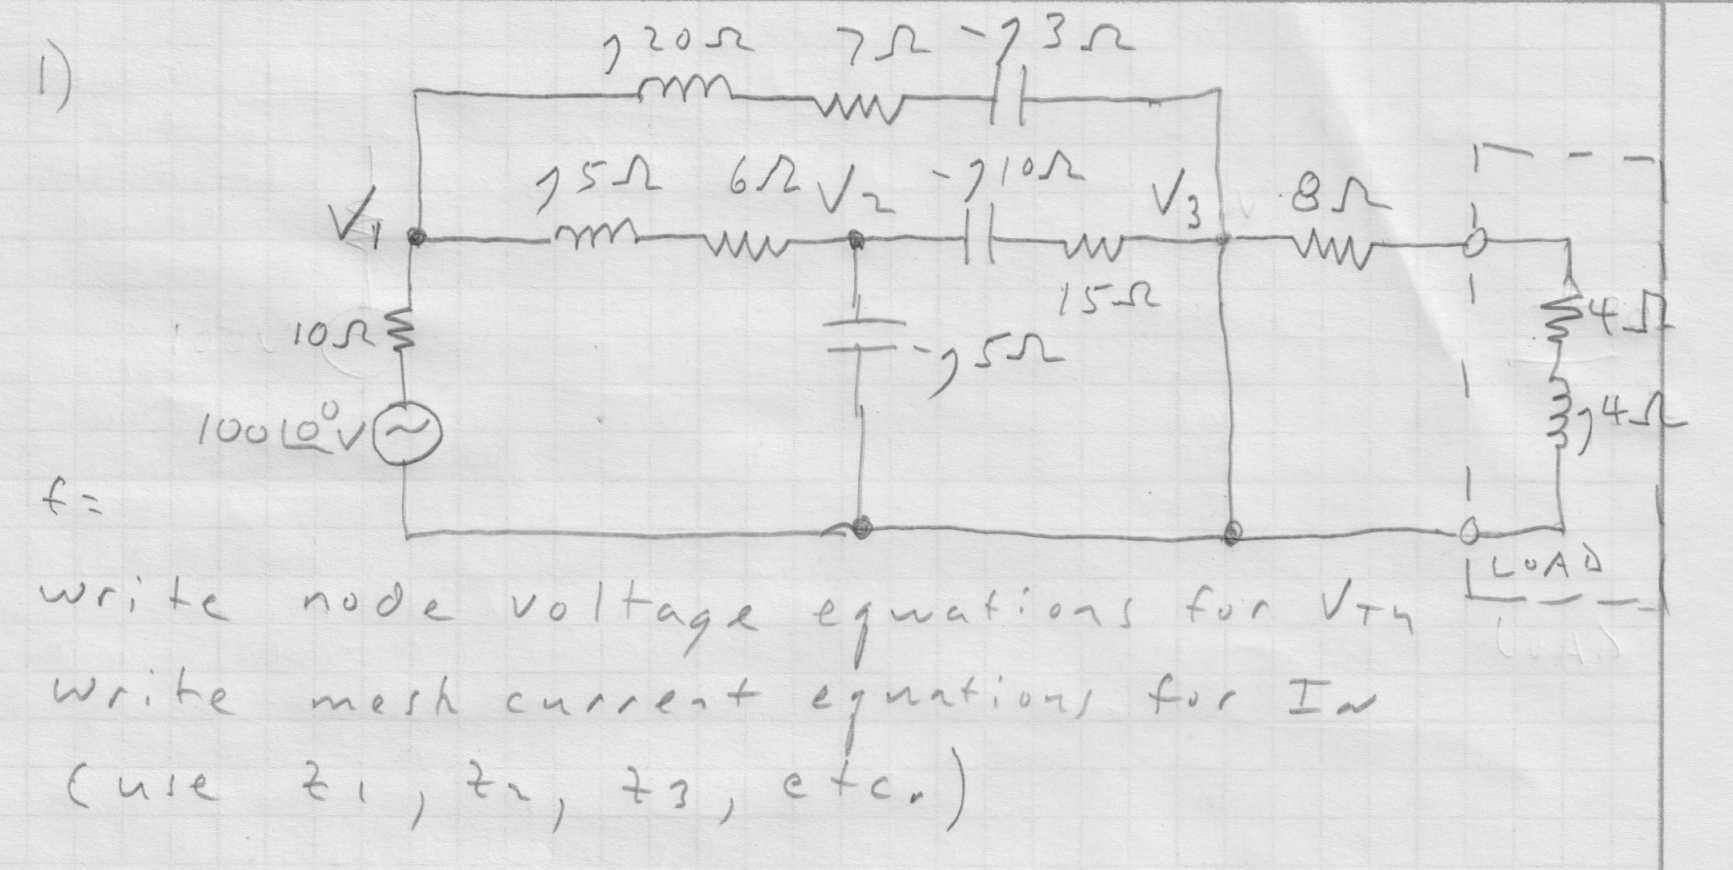 1)
ȷ20Ω 7Ω -ȷ3Ω
ȷ5Ω 6Ω V2 -ȷ10Ω V3 8Ω
V1
15Ω
10Ω -ȷ5Ω 4Ω
100∠0° V ȷ4Ω
f=
LOAD
write node voltage equations for VTh
write mesh current equations for IN
(use Z1, Z2, Z3, etc.)